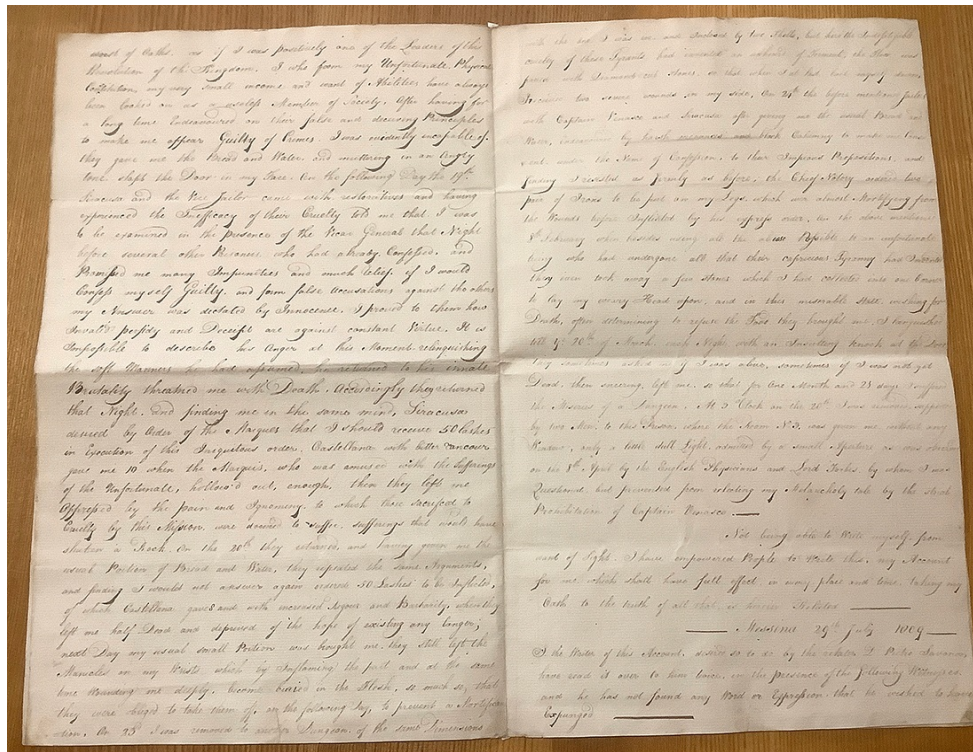 most of Oaths, as if I was positively one of the Leaders of this
Revolution of the Kingdom. I who from my Unfortunate Physical
Constitution, my very small income and want of Abilities have always
been looked on as a useless Member of Society. After having for
a long time Endeavoured on their false and deceiving Principles
to make me appear Guilty of Crimes I was evidently incapable of,
they gave me the Bread and Water, and muttering in an Angry
tone slap'd the Door in my Face. On the following Day the 19th
Siracusa and the Vice Jailor came with restoratives and having
experienced the Inefficacy of their Cruelty told me that I was
to be examined in the presence of the Vicar General that Night
before several other Persons who had already Confessed, and
Promised me many Impunities and much relief, if I would
Confess myself Guilty, and form false Accusations against the others
my Answer was dictated by Innocence. I proved to them how
Invalid perfidy and Deceipt are against constant Virtue. It is
Impossible to describe his Anger at this Moment relinquishing
the soft Manners he had assumed, he returned to his innate
Brutality threatned me with Death. Accordingly they returned
that Night, and finding me in the same mind, Siracusa
desired by Order of the Marquis that I should receive 50 Lashes
in Execution of this Iniquitous order, Castellana with bitter rancour
gave me 10 when the Marquis, who was amused with the Sufferings
of the Unfortunate, hollow'd out, enough, then they left me
Oppressed by the pain and Ignominy, to which those sacrificed to
Cruelty by this Mission, were decreed to suffer, sufferings that would have
shaken a Rock. On the 20th they returned, and having given me the
usual Portion of Bread and Water, they repeated the same Arguments,
and finding I would not answer again ordered 50 Lashes to be Inflicted,
of which Castellana gave 8 and with increased rigour and Barbarity, when they
left me half Dead and deprived of the hope of existing any longer;
next Day my usual small Portion was bought me, they still left the
Manacles on my Wrists, which by Inflaming the part, and at the same
time Wounding me deeply, become buried in the Flesh, so much so, that
they were obliged to take them off, on the following Day, to prevent a Mortifica-
tion. On 23 I was removed to another Dungeon of the same Dimensions
with the I was in, and Swelled by two
cruelty of these Tyrants had invented an Island of Torment, the floor was
paved with Diamond cut Stones, so that when I at last laid myself down,
I received two severe wounds in my side. On 24th the before mentioned Jailor
with Captain Vinasco and Siracusa after giving me the usual Bread and
Water, by harsh menaces and black Calumny to make me Con-
sent under the Name of Confession, to their Impious Propositions, and
finding I resisted as firmly as before, the Chief Notary ordered two
pair of Irons to be put on my Legs, which was almost Mortifying from
the Wounds before Inflicted by his express order, on the above mentioned
8th February when besides using all the abuse Possible to an unfortunate
being who had undergone all that their capricious Tyranny had Invented
they even took away a few Stones which I had collected into one Corner
to lay my weary Head upon, and in this miserable State, wishing for
Death, often determining to refuse the Food they brought me, I languished
till ye 20th of March, each Night with an Insulting knock at the Door
they sometimes asked me if I was alive, sometimes if I was not yet
Dead, then sneering left me, so that for One Month and 23 days I suffered
the Miseries of a Dungeon. At 3 'Clock on the 20th I was removed supported
by two Men to this Prison where the Room No 3, was given me without any
only a little dull Light, admitted by a small Aperture as was observed
on the 8th April by the English Physicians and Lord Forbes, by whom I was
Questioned, but prevented from relating my Melancholy tale by the
Prohibition of Captain Vinasco.
Not being able to Write myself from
want of Sight, I have empowered People to Write this, my Account
for me which shall have full effect in every place and time, taking my
Oath to the truth of all that is herein Related
Messina 29th July 1809
I the Writer of this Account, desired so to do by the relator D. Pietro
have read it over to him twice, in the presence of the following Witnesses
and he has not found any Word or Expression that he wished to have
Expunged